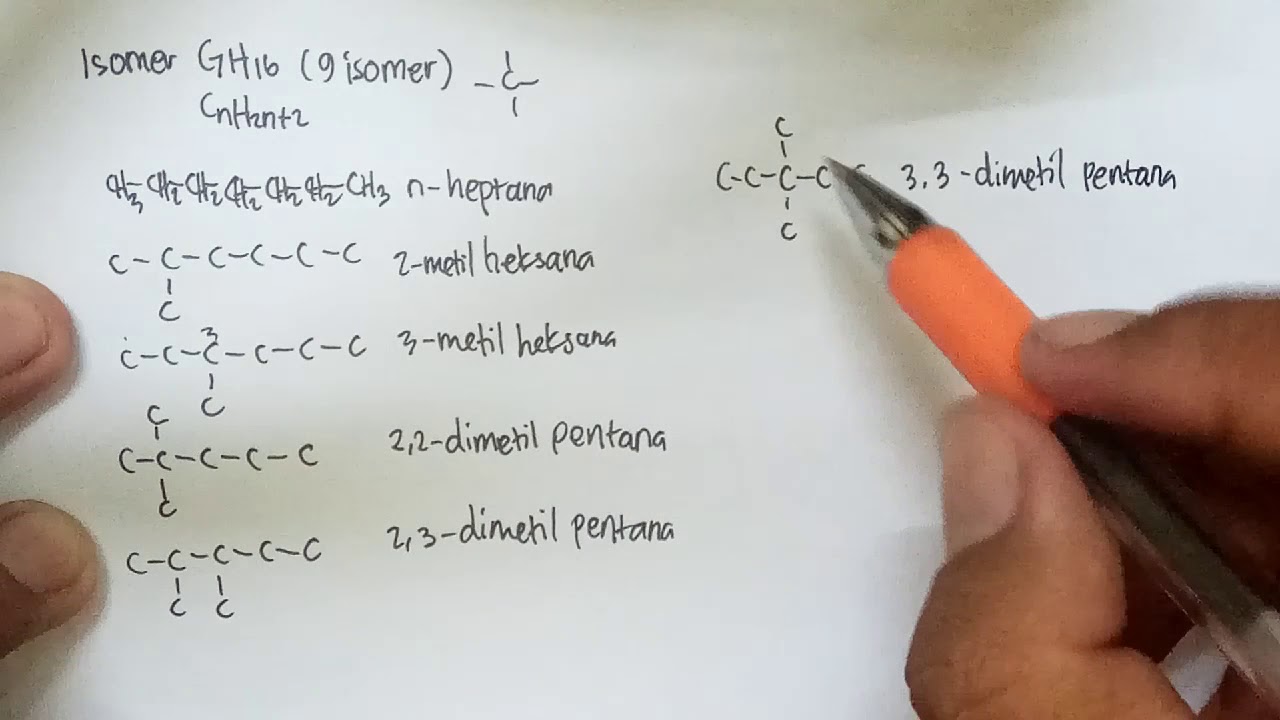 Isomer C7H16 (9 isomer) -C-
CnH2n+2
CH3 CH2 CH2 CH2 CH2 CH2 CH3 n-heptana
C-C-C-C-C-C 2-metil heksana
C
3
C-C-C-C-C-C 3-metil heksana
C
C
C-C-C-C-C 2,2-dimetil pentana
C
C-C-C-C-C 2,3-dimetil pentana
C C
C
C-C-C-C C 3,3-dimetil pentana
C